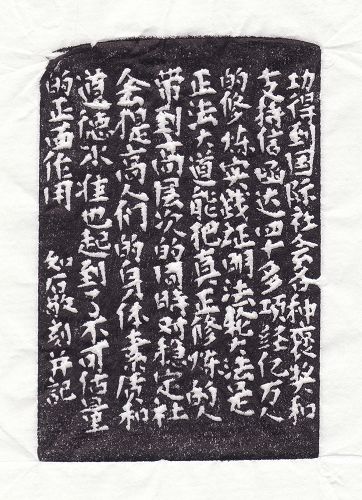 功得到国际社会各种褒奖和
支持信函达四十多项经亿万人
的修炼实践证明法轮大法是
正法大道能把真正修炼的人
带到高层次的同时对稳定社
会提高人们的身体素质和
道德水准也起到了不可估量
的正面作用 刻并记